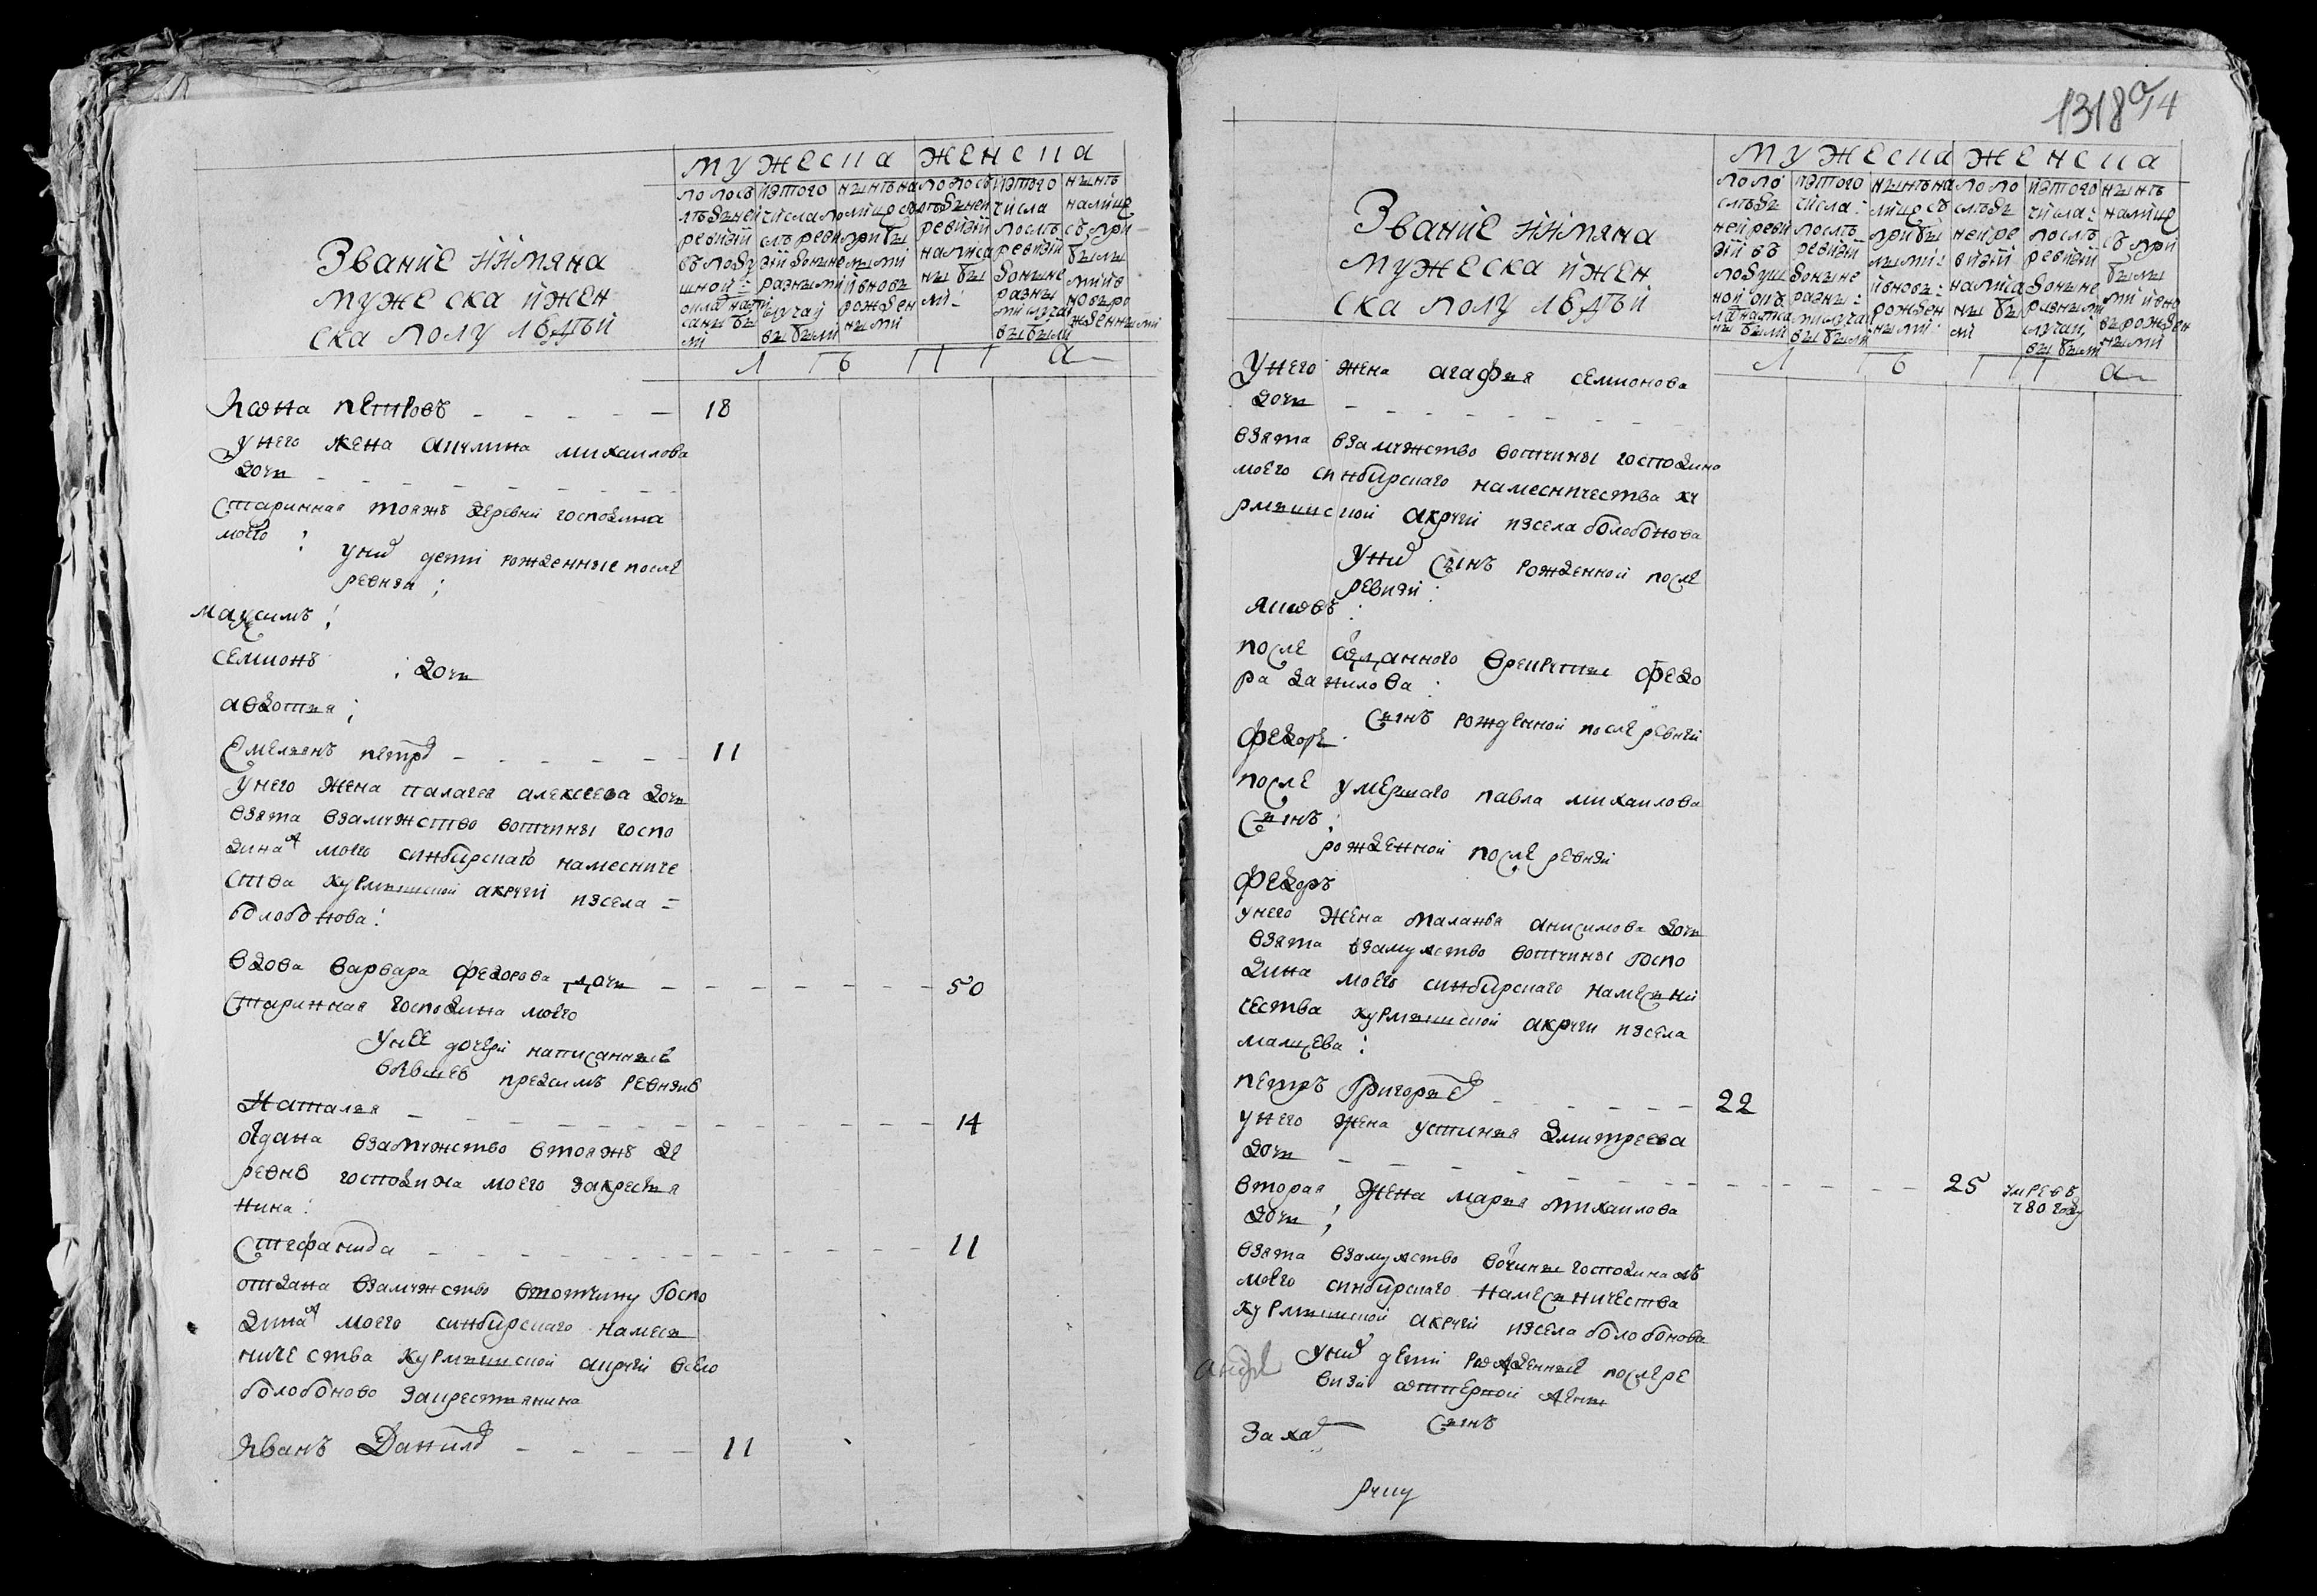 Звание и имяна
мужеска и жен
ска полу людѣй
мужеска женска
по послѣдней ревизии въ подушной окладъ написаны были
из того числа послѣ ревизии до ныне разными случаи выбыли
нынѣ на лицо съ прибылыми и вновь рожденными
по последней ревизии написаны были
из того числа послѣ ревизии до ныне разными случаи выбыли
нынѣ на лице съ прибылыми и вновь рожденными
л ѣ т а
петровъ 18
у него жена акулина михаилова
дочь
старинная тояжъ деревни господина
моего
у них дети рожденные после
ревизи
максимъ
семионъ дочь
авдотья
Емельянъ петров 11
у него жена палагея алексеева дочь
взята взамужство вотчины госпо
дина моего синбирскаго намесниче
ства курмышской акруги изсела
болобонова
вдова варвара федорова дочь 50
старинная господина моего
у нее дочери написанные
вбывшею предсимъ ревизию
Наталья 14
одана взамужство втояжъ де
ревню господина моего закресть
нина
Стефанида 11
отдана взамужство вотчину госпо
дина моего синбирскаго намест
ничества курмышской акруги всело
болобоново закрестьянина
Иванъ Данилов 11
1318об 14
Звание и имяна
мужеска и жен
ска полу людѣй
мужеска женска
по последней ревизии въ подушной окладъ написаны были
из того числа послѣ ревизии до ныне разными случаи выбыли
нынѣ на лице съ прибылыми и вновь рожденными
по последней ревизии написаны были
из того числа послѣ ревизии до ныне разными случаи выбыли
нынѣ на лице съ прибылыми и вновь рожденными
л ѣ т а
у него жена агафья семионова
дочь
взята взамужство вотчины господина
моего синбирскаго намесничества ку
рмышской акруги изсела болобонова
у них сынъ рожденной после
ревизии
яковъ
после отданного врекруты федо
ра данилова
сынъ рожденной после ревизии
федоръ
после умершаго павла михаилова
сынъ
рожденной после ревизии
федоръ
у него жена маланья анисимова дочь
взята взамужство вотчины госпо
дина моего синбирскаго намесьни
чества курмышской акруги изсела
малцева
петръ Григорьев 22
у него жена устинья дмитреева
дочь 25 умре въ 780 году
вторая жена марья михаилова
дочь
взята взамужство вочины господина
моего синбирскаго намесьничества
курмышской акруги изсела болобонова
у них дети рожденные после ре
визи отпервой жены
сынъ
Заха
рчку